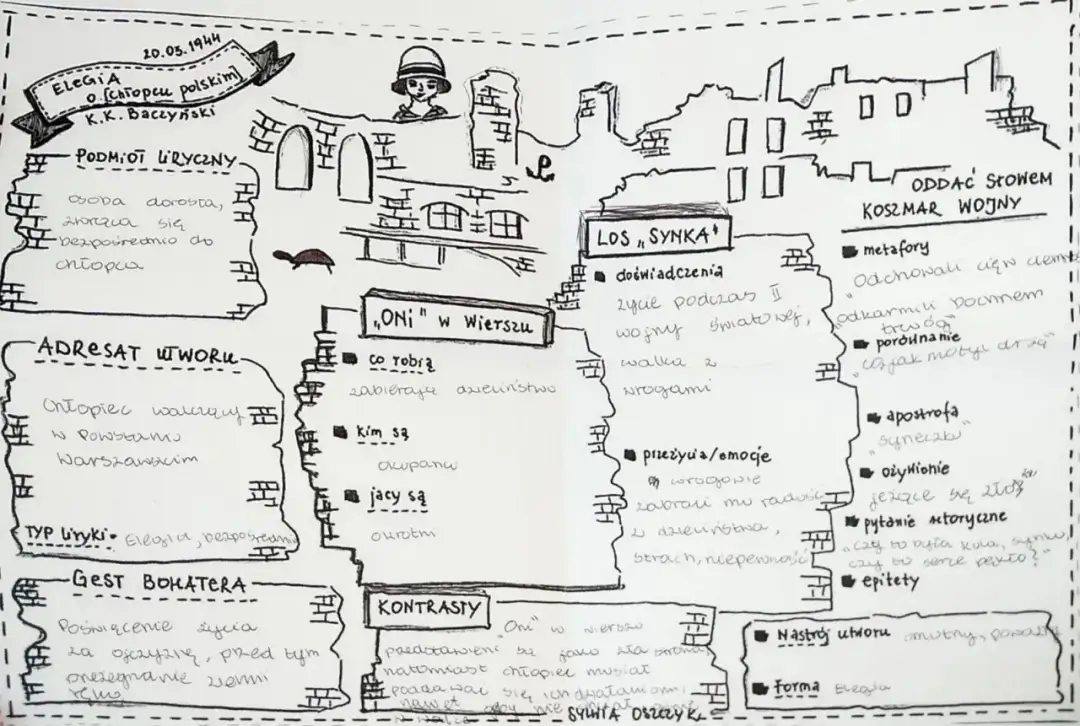 20.03.1944
ELEGIA
O [Chłopcu polskim]
K.K. Baczyński
PODMIOT LIRYCZNY
osoba dorosła,
zwraca się
bezpośrednio do
chłopca
ADRESAT UTWORU
Chłopiec walczący
w Powstaniu
Warszawskim
TYP liryki • Elegia, bezpośrednia
GEST BOHATERA
Poświęcenie życia
za ojczyznę, przed tym
przeżegnanie ziemi
ręką
„ONI" w Wierszu
co robią
zabierają dzieciństwo
kim są
okupanci
jacy są
okrutni
KONTRASTY
"Oni" w wierszu
przedstawieni są jako zła strona,
natomiast chłopiec musiał
poddawać się ich działaniom,
nawet aby nie
w walce
LOS „SYNKA"
doświadczenia
życie podczas II
wojny światowej,
walka z
wrogami
przeżycia/emocje
wrogowie
zabrali mu radość
z dzieciństwa,
strach, niepewność
ODDAĆ SŁOWEM
KOSZMAR WOJNY
metafory
"Odchowali cię w ciemno
odkarmili bochnem
trwóg"
porównanie
"co jak motyl drżą"
apostrofa
"syneczku"
ożywienie
jeżące się zło"
pytanie retoryczne
„Czy to była kula, synku,
czy to serce pękło?"
epitety
Nastrój utworu smutny, poważny
Forma Elegia
SYLWIA OSZCZYK